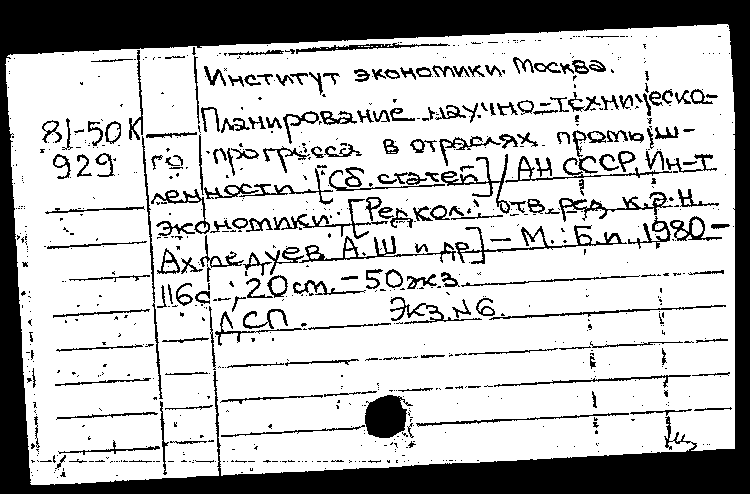 Институт экономики. Москва.
81-50К
929
Планирование научно-техническо-
го прогресса в отраслях промыш-
ленности: [Сб. статей] / АН СССР, Ин-т
экономики; [Редкол.: отв. ред. к.э.н.
Ахмедуев А.Ш и др] – М.: Б.и., 1980 –
116с ; 20 см. – 50 экз.
ДСП. Экз. N6.